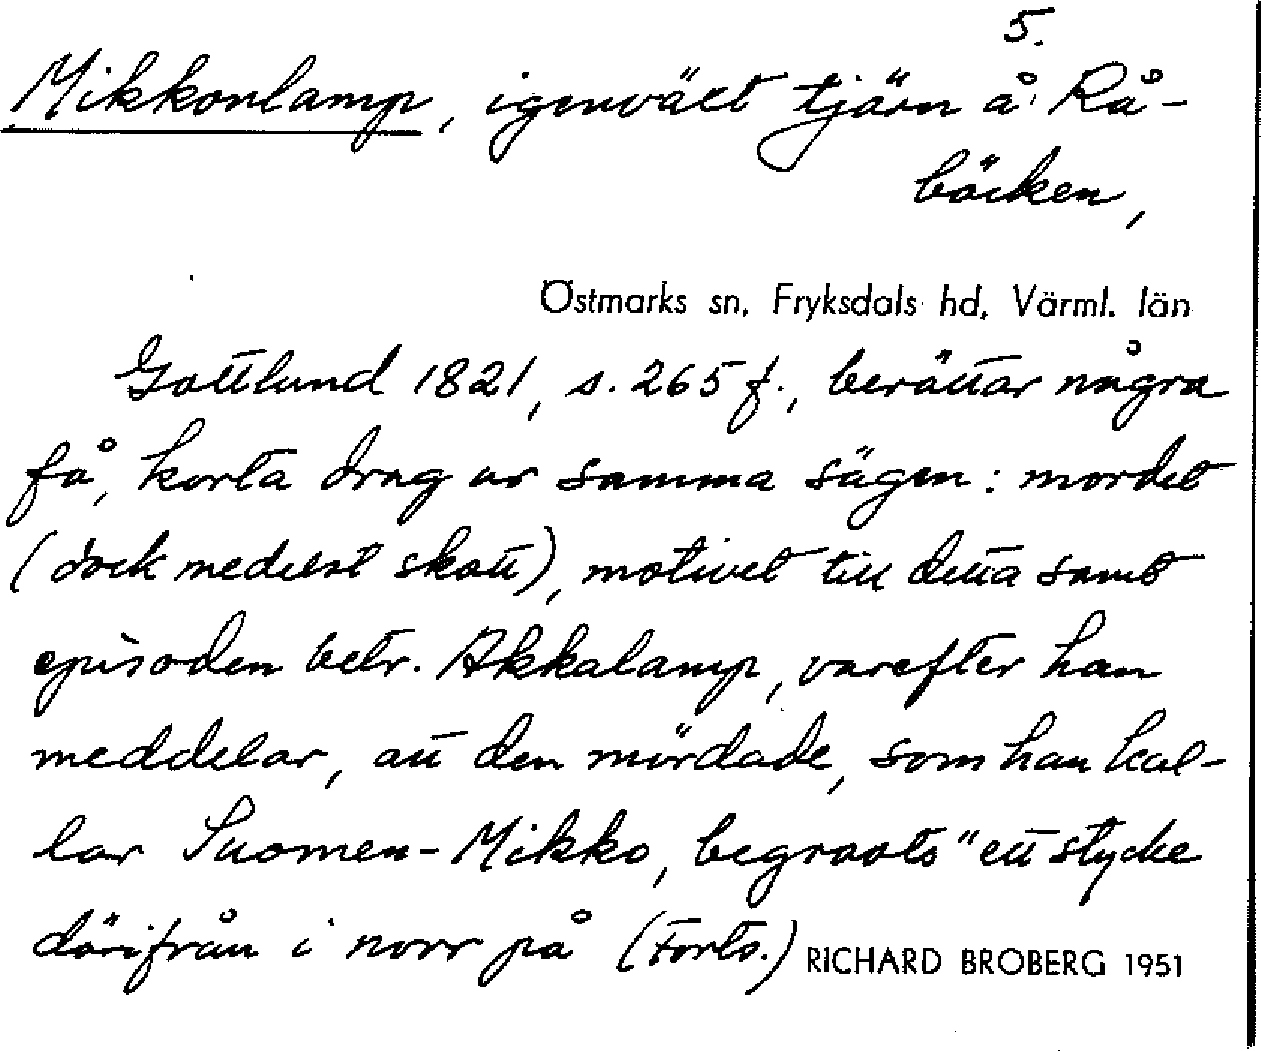 5.
Mikkonlamp, igenvält tjärn å Rå-
bäcken,
Östmarks sn, Fryksdals hd, Värml. län
Gottlund 1821, s. 265 f., berättar några
få, korta drag ur samma sägen: mordet
(dock medelst skott), motivet till detta samt
episoden betr. Akkalamp, varefter han
meddelar, att den mördade, som han kal-
lar Suomen-Mikko, begravts "ett stycke
därifrån i norr på (Forts.)
RICHARD BROBERG 1951